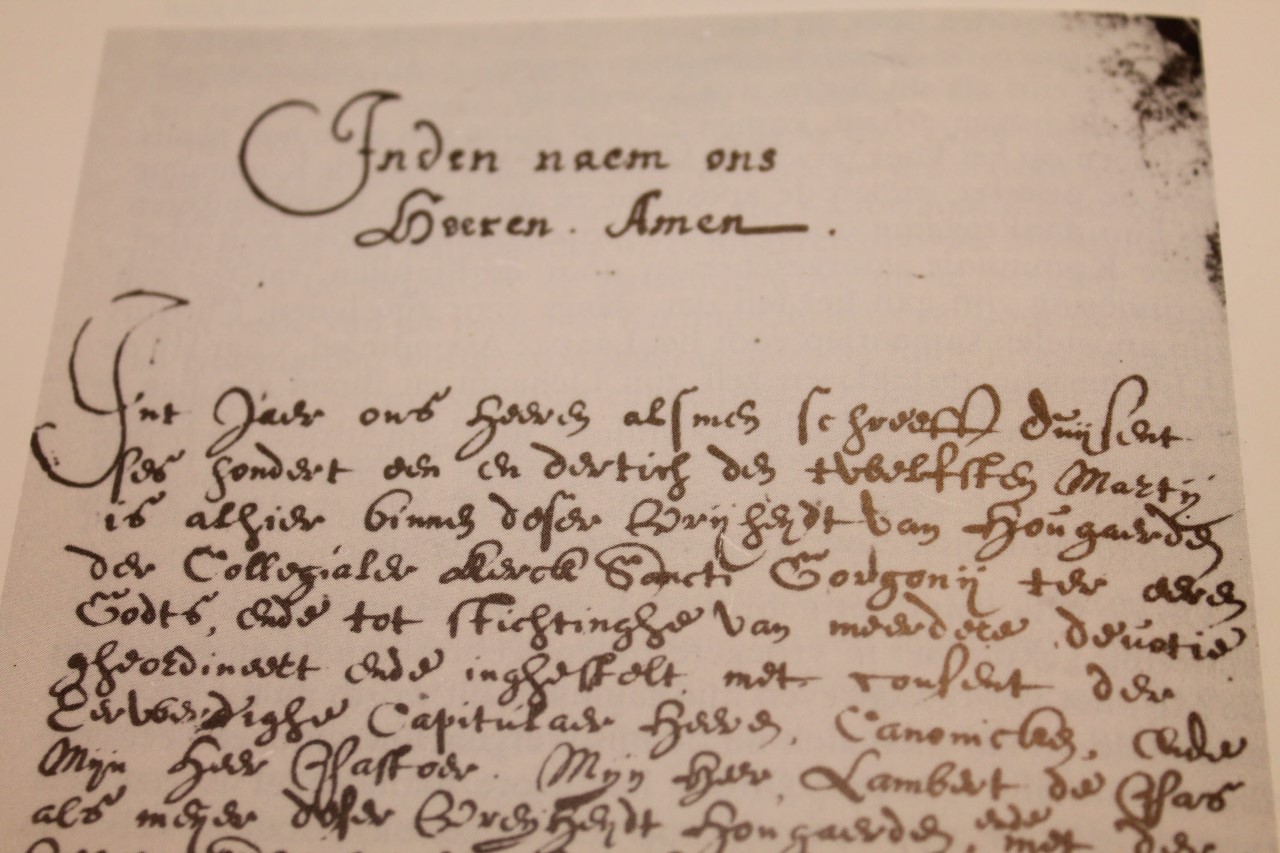 Inden naem ons
Heeren. Amen.
Int Jaer ons Heeren alsmen schreeff duijsent
ses hondert een en dertich den twelfsten Martij
is alhier binnen deser Vrijheijdt van Hougaerden
der Collegialer kerck Sancti Gorgonij ter eeren
Godts, ende tot stichtinghe van meerdere devotie
gheordineert ende inghestelt met consent der
Eerweerdighe Capitulaer Heeren, Canonicken, ende
Mijn Heer Pastoer. Mijn Heer Lambert de Pars
als meijer deser Vreijheijdt Hougaerden ende met